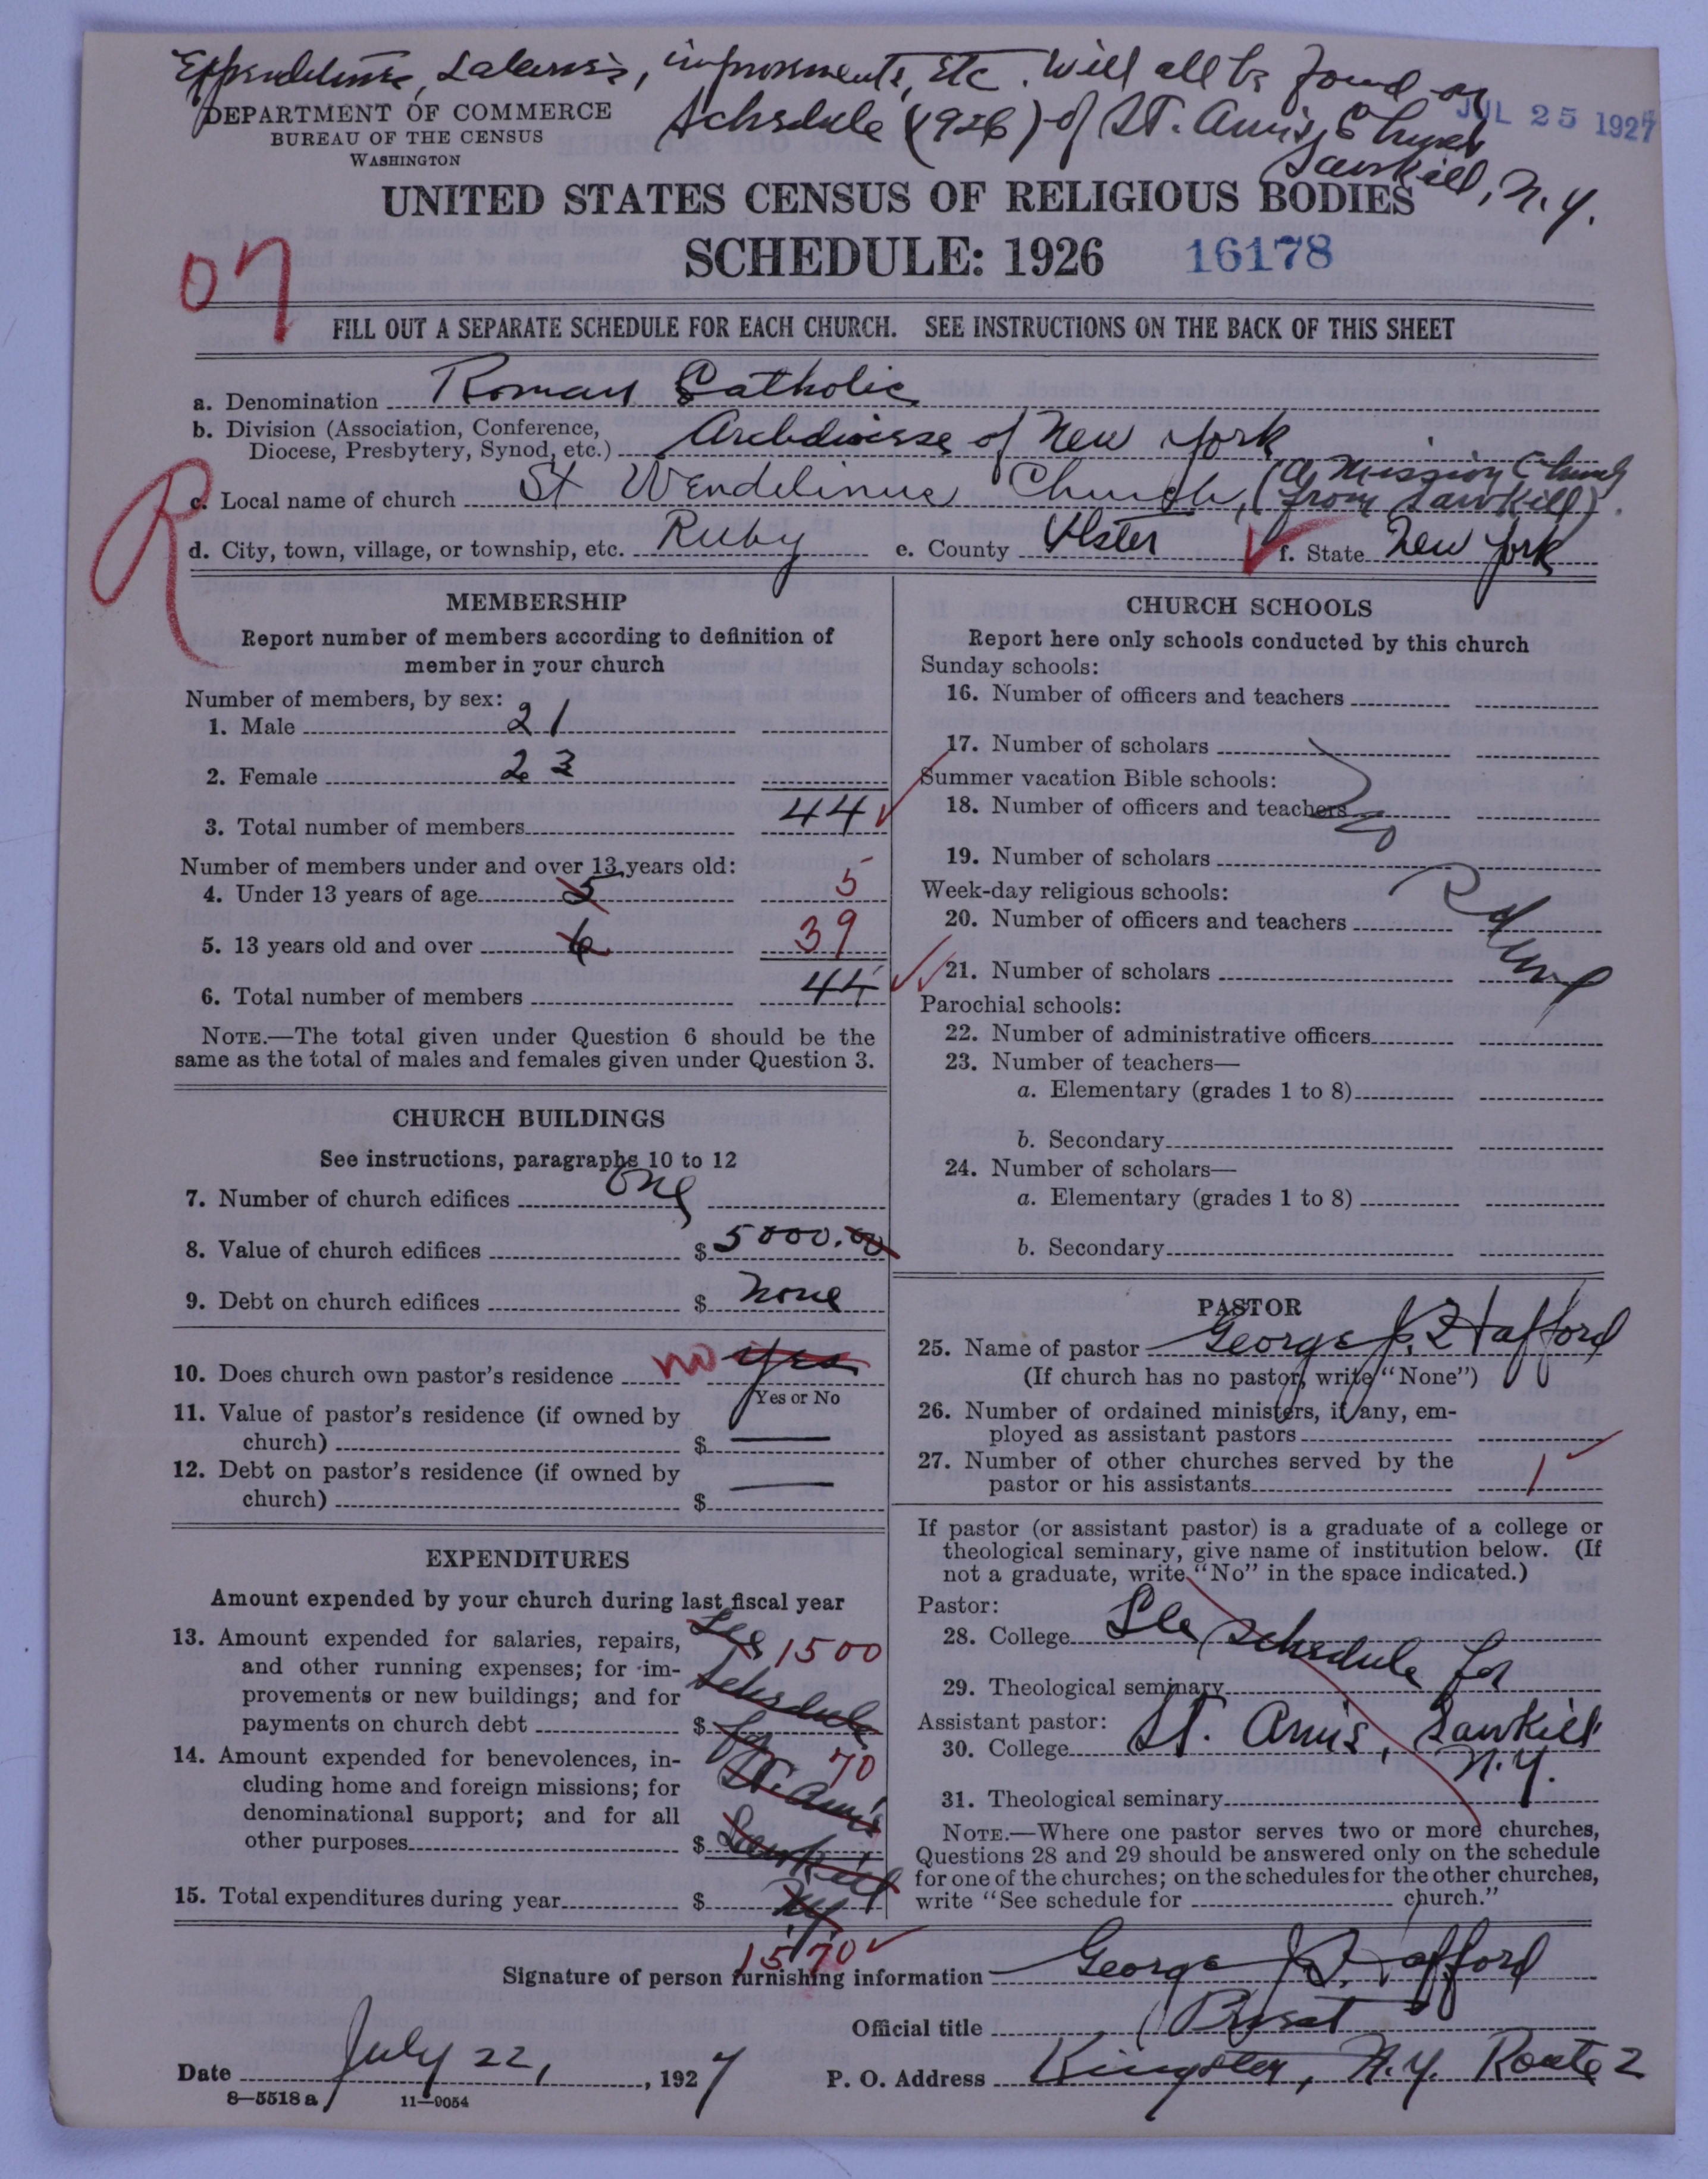 Expenditures, Salaries, improvements, Etc. Will all be found on
Schedule (1926) of St. Ann's Church
Sawkill, N.Y.
JUL 25 1927
DEPARTMENT OF COMMERCE
BUREAU OF THE CENSUS
WASHINGTON
UNITED STATES CENSUS OF RELIGIOUS BODIES
SCHEDULE: 1926 16178
FILL OUT A SEPARATE SCHEDULE FOR EACH CHURCH. SEE INSTRUCTIONS ON THE BACK OF THIS SHEET
a. Denomination Roman Catholic
b. Division (Association, Conference,
Diocese, Presbytery, Synod, etc.) Archdiocese of New York
c. Local name of church St Wendelinus Church, (a Mission Church
from Sawkill).
d. City, town, village, or township, etc. Ruby e. County Ulster f. State New York
R
MEMBERSHIP
Report number of members according to definition of
member in your church
Number of members, by sex:
1. Male 21
2. Female 23
3. Total number of members 44
Number of members under and over 13 years old:
4. Under 13 years of age 5 5
5. 13 years old and over 39
6. Total number of members 44
NOTE.—The total given under Question 6 should be the
same as the total of males and females given under Question 3.
CHURCH BUILDINGS
See instructions, paragraphs 10 to 12
7. Number of church edifices One
8. Value of church edifices $ 5000.00
9. Debt on church edifices $ None
10. Does church own pastor's residence no yes
Yes or No
11. Value of pastor's residence (if owned by
church) $ —
12. Debt on pastor's residence (if owned by
church) $ —
EXPENDITURES
Amount expended by your church during last fiscal year
13. Amount expended for salaries, repairs, See 1500
and other running expenses; for im-
provements or new buildings; and for Schedule
payments on church debt $ for
14. Amount expended for benevolences, in- 70
cluding home and foreign missions; for St. Ann's
denominational support; and for all
other purposes $ Sawkill
15. Total expenditures during year $ N.Y.
1570
CHURCH SCHOOLS
Report here only schools conducted by this church
Sunday schools:
16. Number of officers and teachers
17. Number of scholars
Summer vacation Bible schools:
18. Number of officers and teachers
19. Number of scholars
Week-day religious schools:
20. Number of officers and teachers
21. Number of scholars
Parochial schools:
22. Number of administrative officers
23. Number of teachers—
a. Elementary (grades 1 to 8)
b. Secondary
24. Number of scholars—
a. Elementary (grades 1 to 8)
b. Secondary
PASTOR
25. Name of pastor George J. Hafford
(If church has no pastor, write "None")
26. Number of ordained ministers, if any, em-
ployed as assistant pastors
27. Number of other churches served by the
pastor or his assistants 1
If pastor (or assistant pastor) is a graduate of a college or
theological seminary, give name of institution below. (If
not a graduate, write "No" in the space indicated.)
Pastor:
28. College See Schedule for
29. Theological seminary
Assistant pastor:
30. College St. Ann's, Sawkill
N.Y.
31. Theological seminary
NOTE.—Where one pastor serves two or more churches,
Questions 28 and 29 should be answered only on the schedule
for one of the churches; on the schedules for the other churches,
write "See schedule for church."
Signature of person furnishing information George J. Hafford
Official title Priest
Date July 22, 1927 P. O. Address Kingston, N.Y. Route 2
8—5518 a 11—9054